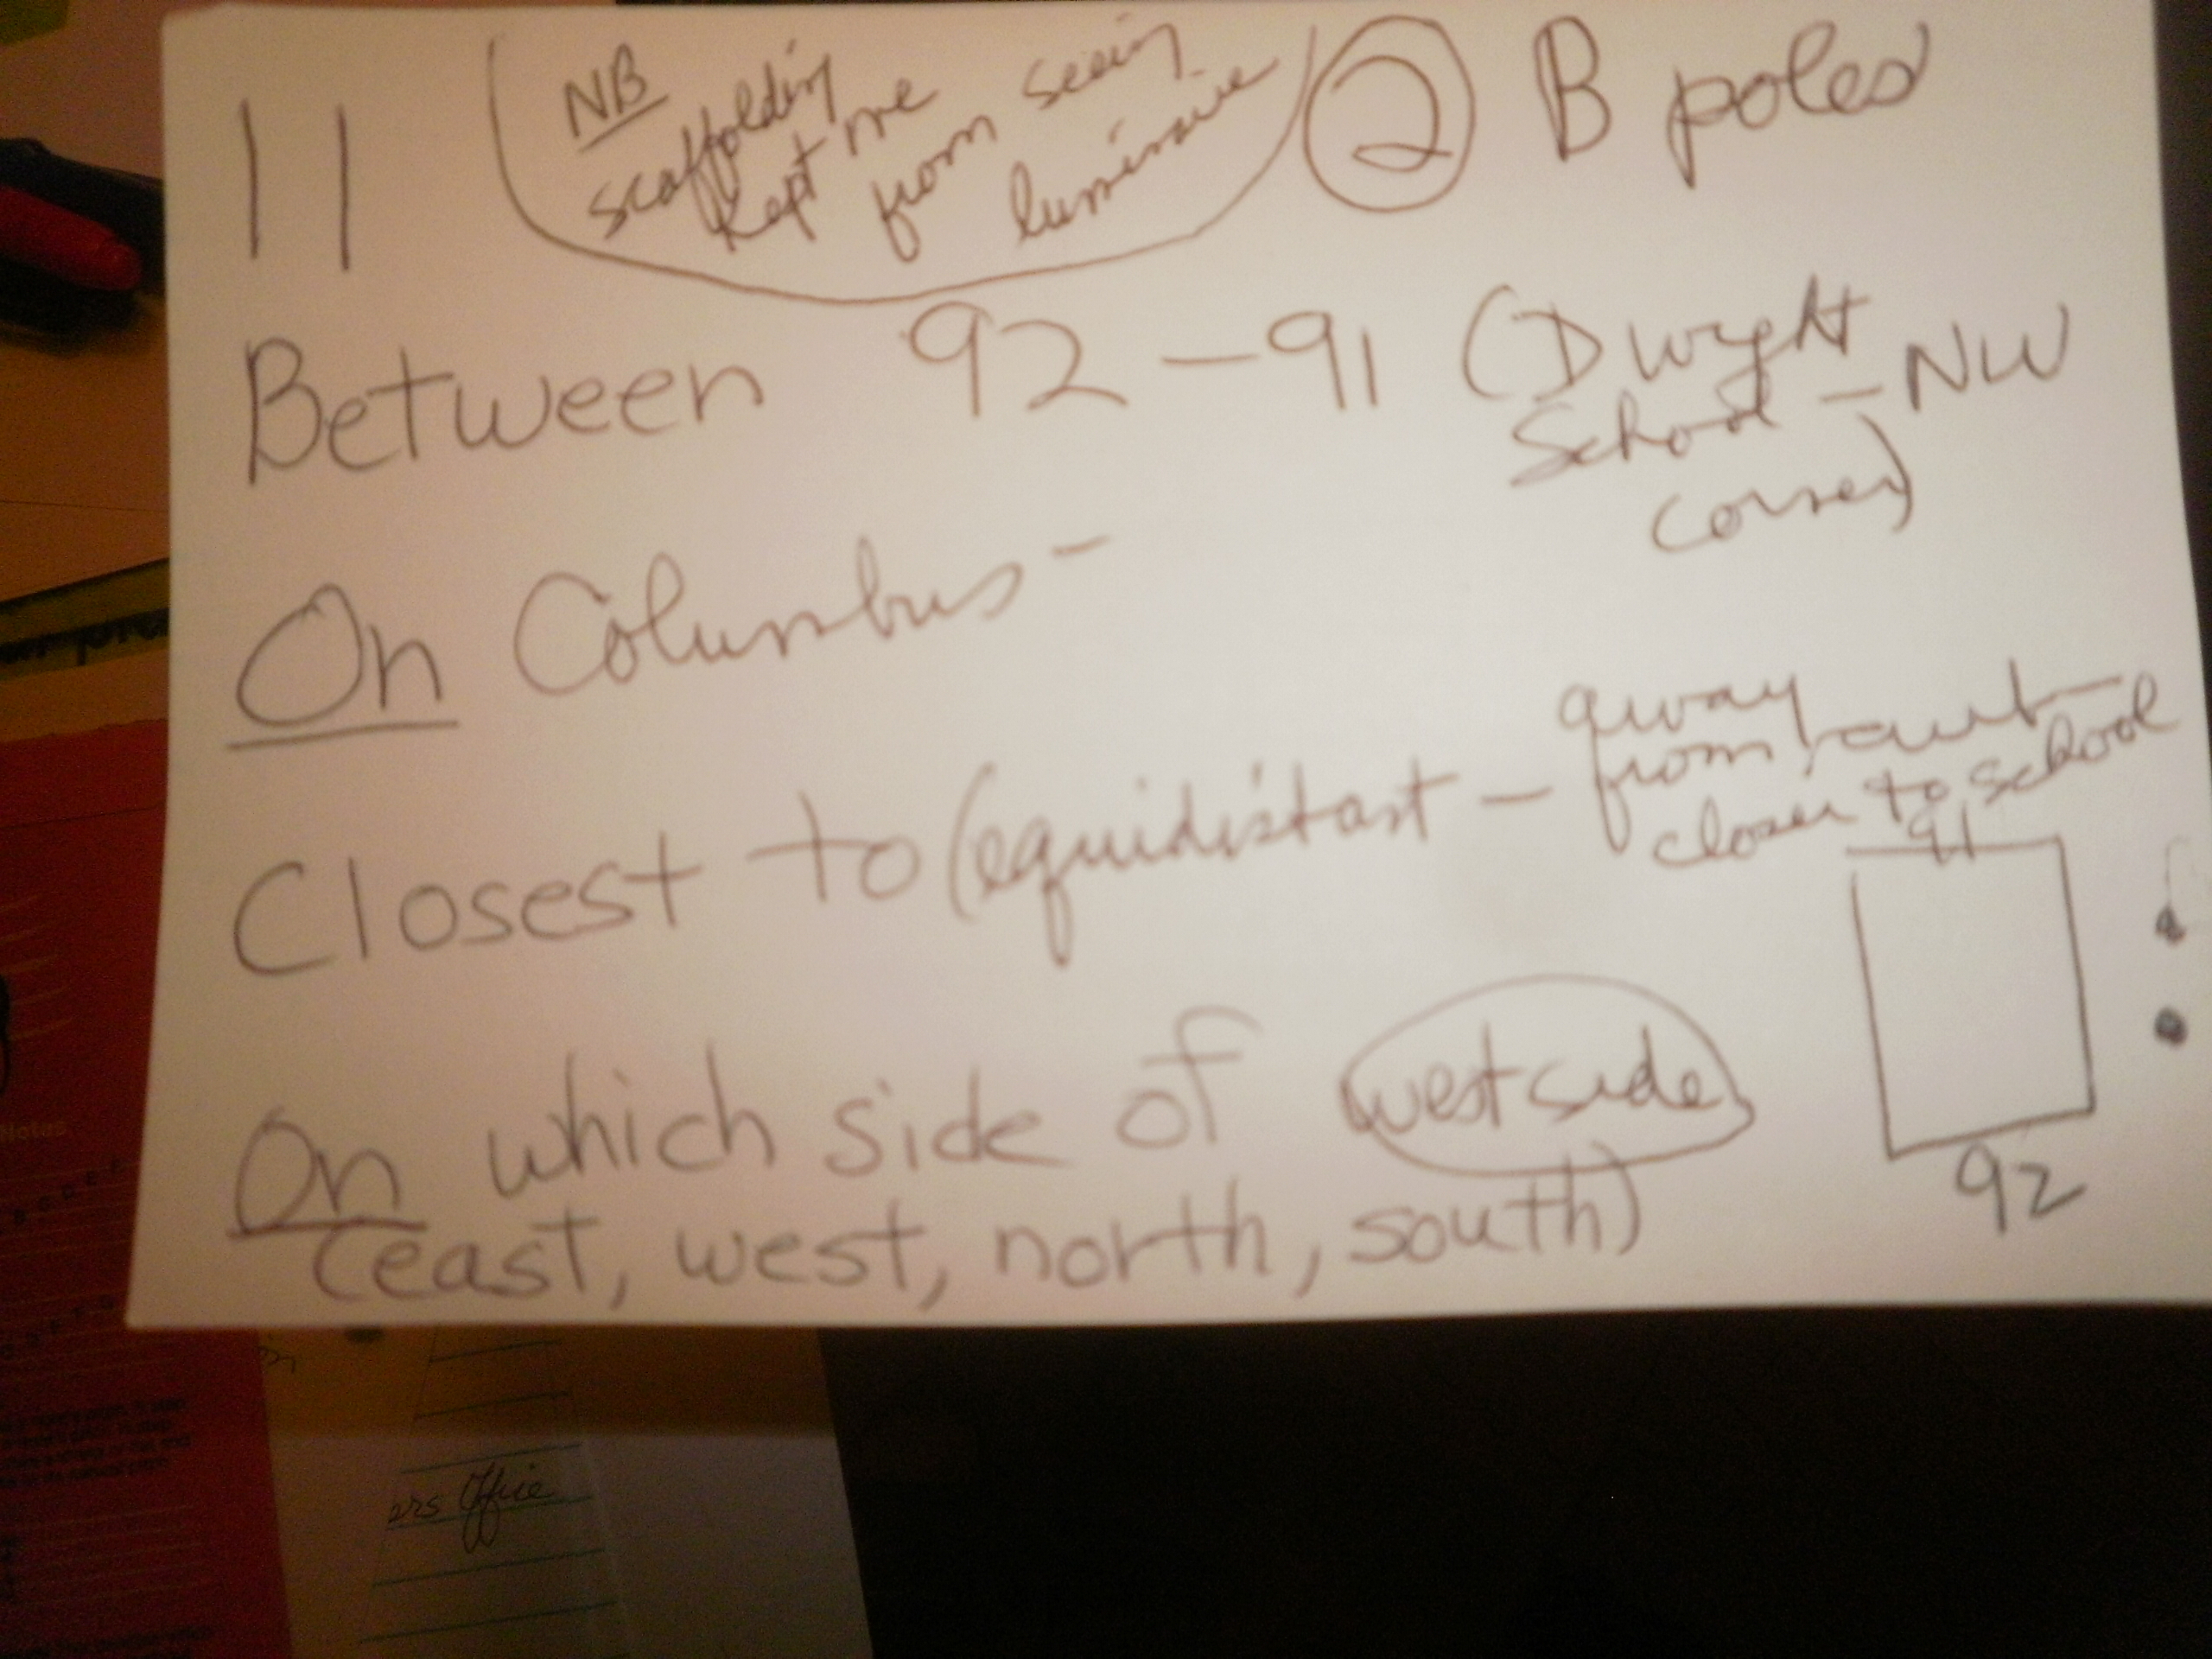 11
NB
scaffolding
kept me
from seeing
luminaire
2 B poles
Between 92-91 (Dwight
School - NW
corner)
On Columbus -
Closest to (equidistant - away
from
closer to school
91
On which side of west side
(east, west, north, south)
92
Notes
Office